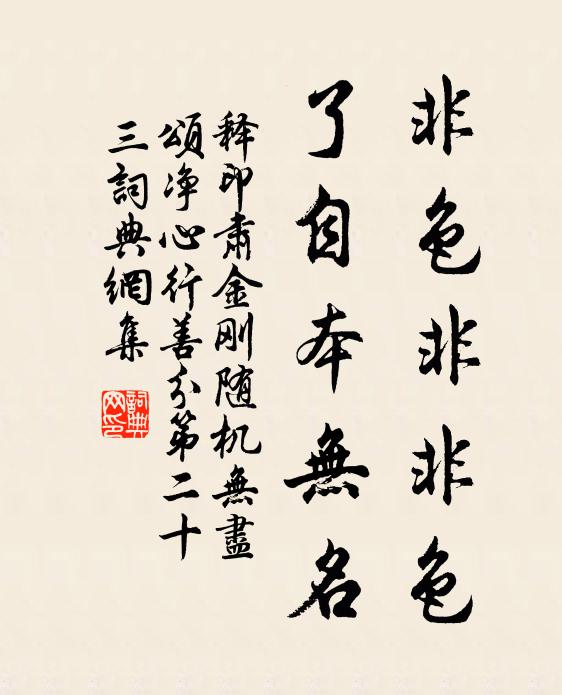 非色非非色
了自本無名
释印肃金刚随机無盡
頌净心行善分第二十
三詞典網集
詞典网印